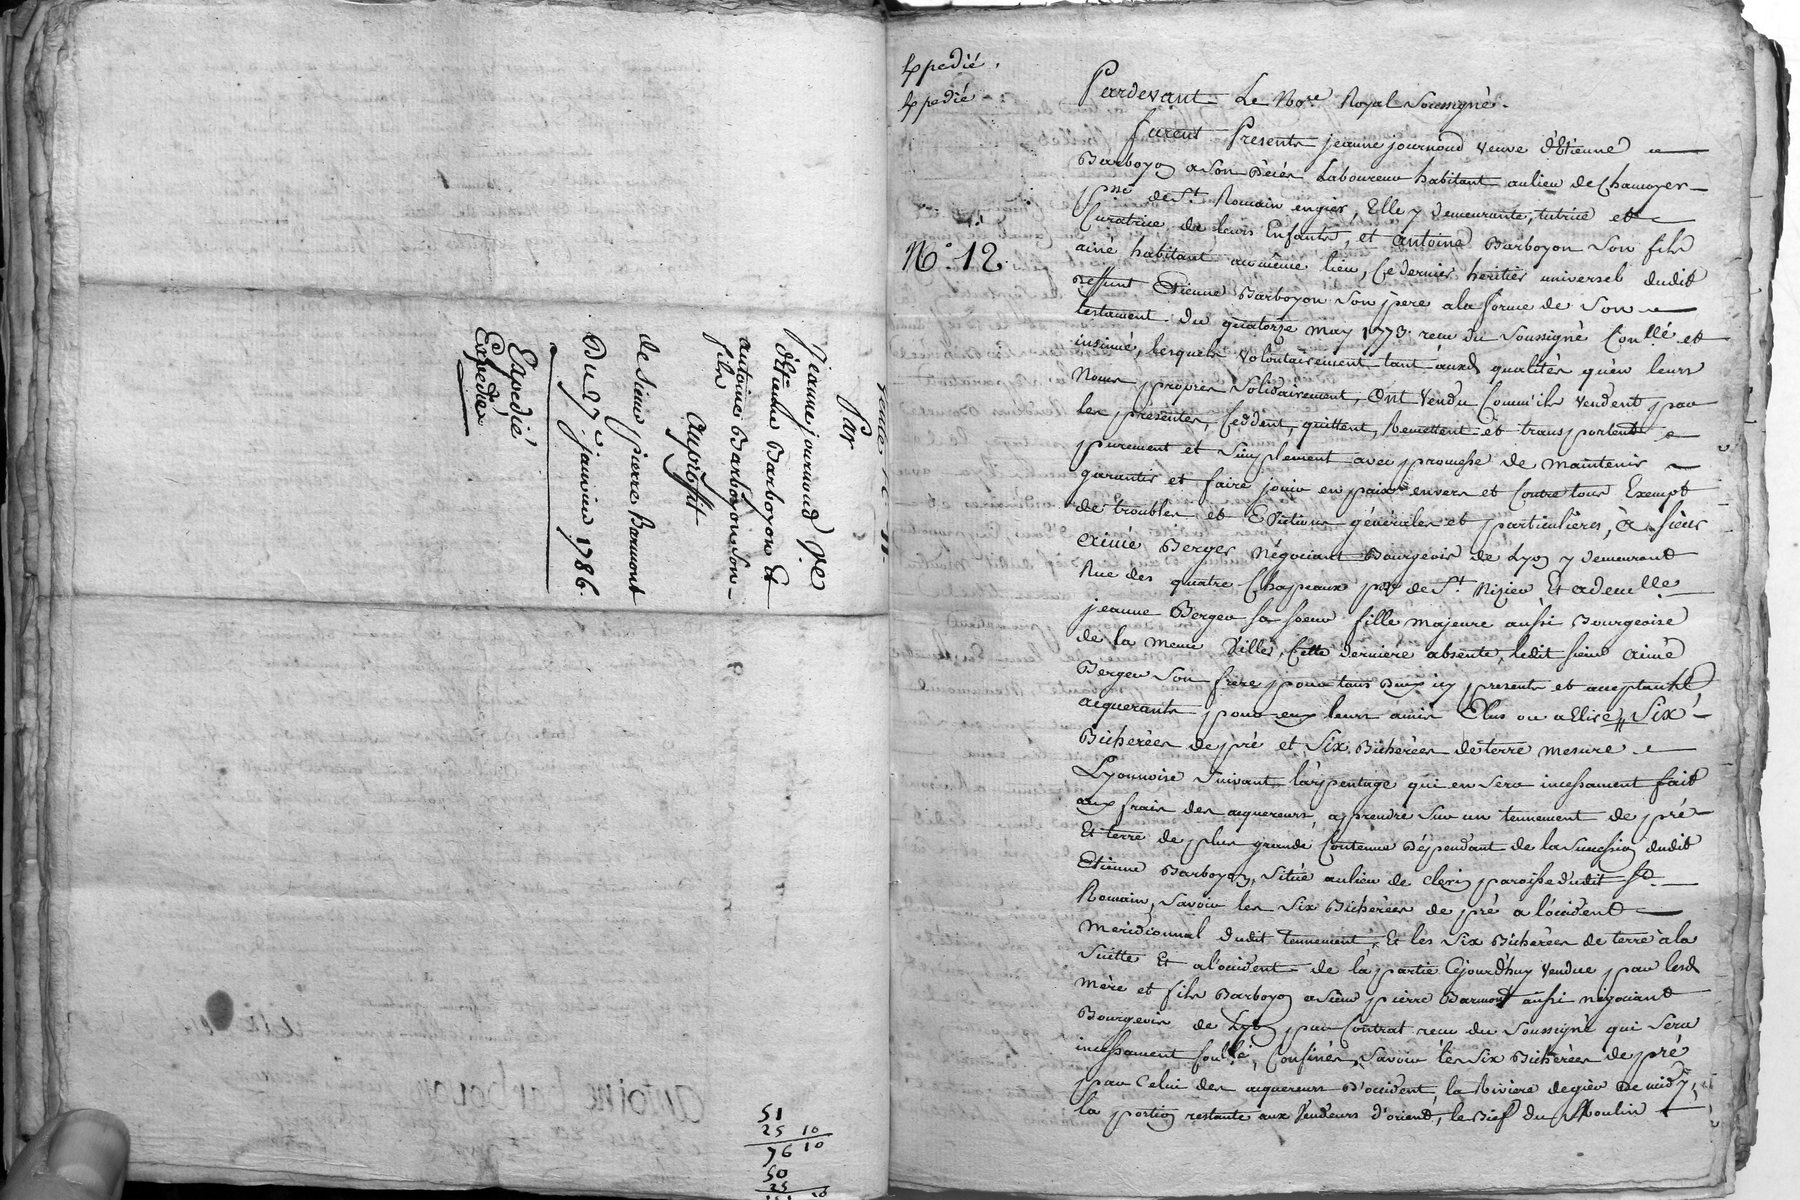 Vente
Par
Jeanne journoud Ve
d'Etienne Barboyon Et
antoine Barboyon son
fils
Auproffit
de sieur pierre Barmont
Du 27e janvier 1786.
Expedié
Expedié
51
25 10
76 10
50
25
Expedié.
Expedié
N.o 12.
Pardevant Le No.re Royal Soussigné.
furent Presents jeanne journoud veuve d'Etienne
Barboyon a son décés Laboureur habitant au lieu de Chamoyer
p.sse de S.t Romain en gier, Elle y demeurante, tutrice et
Curatrice de leurs Enfants, et antoine Barboyon son fils
ainé habitant au même lieu, Ce dernier heritier universel dudit
deffunt Etienne Barboyon son pere a la forme de son
testament du quatorze may 1773. recu du soussigné Conllé et
insinué, lesquels volontairement tant auxd. qualités qu'en leurs
Noms propres solidairement, Ont Vendu Comm'ils Vendent par
les présentes, Ceddent, quittent, Remettent et transportent
purement et simplement avec promesse de maintenir
garantir et faire jouir en paix envers et Contre tous Exempt
de troubles et Evictions générales et particulières, à sieur
aimé Berger Négociant Bourgeois de Lyon y demeurant
Rue des quatre Chapeaux p.sse de S.t Nizier Et a demlle
jeanne Berger sa soeur fille majeure aussi Bourgeoise
de la meme Ville, Cette dernière absente, ledit sieur aimé
Berger son frère pour tous deux icy present et acceptant
acquerants pour eux leurs amis Elus ou a Elire, Six
Bicherées de pré et six Bicherées de terre mesure
Lyonnoise suivant l'arpentage qui en sera incessament fait
aux frais des acquereurs, a prendre sur un tennement de pré
Et terre de plus grande Contenue dépendant de la succession dudit
Etienne Barboyon, situé au lieu de Cleri paroisse dudit St.
Romain, savoir les six Bicherées de pré a l'occident
Meridionnal dudit tennement, Et les six Bicherées de terre à la
suitte Et a l'occident de la partie Cejourd'huy vendue par lesd.
mère et fils Barboyon a sieur pierre Barmont aussi négociant
Bourgeois de Lyon par Contrat recu du soussigné qui sera
incessament Conllé, Confinés, savoir les six Bicherées de pré
par Celui des acquereurs d'occident, la Riviere de gier de midy,
la portion restante aux Vendeurs d'orient, le Bief du Moulin